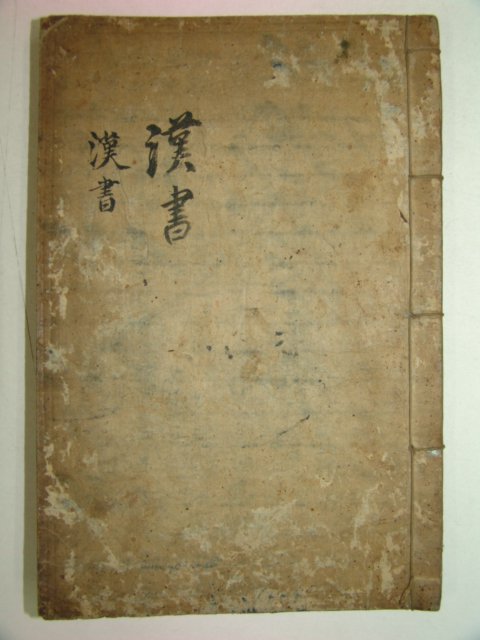 漢書
漢書